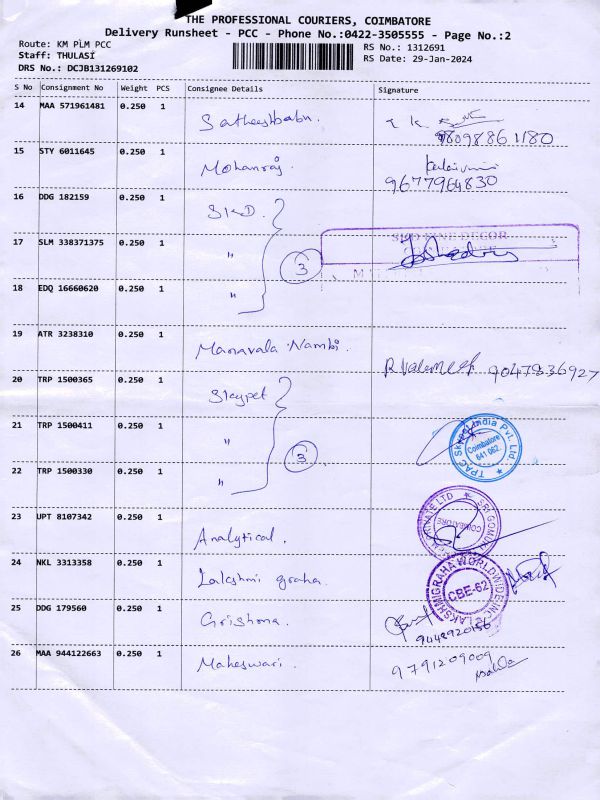 THE PROFESSIONAL COURIERS, COIMBATORE
Delivery Runsheet - PCC - Phone No.:0422-3505555 - Page No.:2
Route: KM PLM PCC
RS No.: 1312691
Staff: THULASI
RS Date: 29-Jan-2024
DRS No.: DCJB131269102
S No Consignment No Weight PCS Consignee Details Signature
14 MAA 571961481 0.250 1 Satheeshbabu.
9809886 1180
15 STY 6011645 0.250 1 Mohanraj.
9677964830
16 DDG 182159 0.250 1 SKD.
17 SLM 338371375 0.250 1 "
3
18 EDQ 16660620 0.250 1 "
19 ATR 3238310 0.250 1 Manavala Nambi.
20 TRP 1500365 0.250 1 Skypet
21 TRP 1500411 0.250 1 "
TPAC Skypet India Pvt. Ltd.
Coimbatore
641 062.
3
22 TRP 1500330 0.250 1 "
23 UPT 8107342 0.250 1 Analytical.
COIMBATORE
24 NKL 3313358 0.250 1 Lakshmi graha.
LAKSHMIGRAHA WORLDWIDE INC
CBE-62
25 DDG 179560 0.250 1 Grishma.
9048920156
26 MAA 944122663 0.250 1 Maheswari.
9791209009